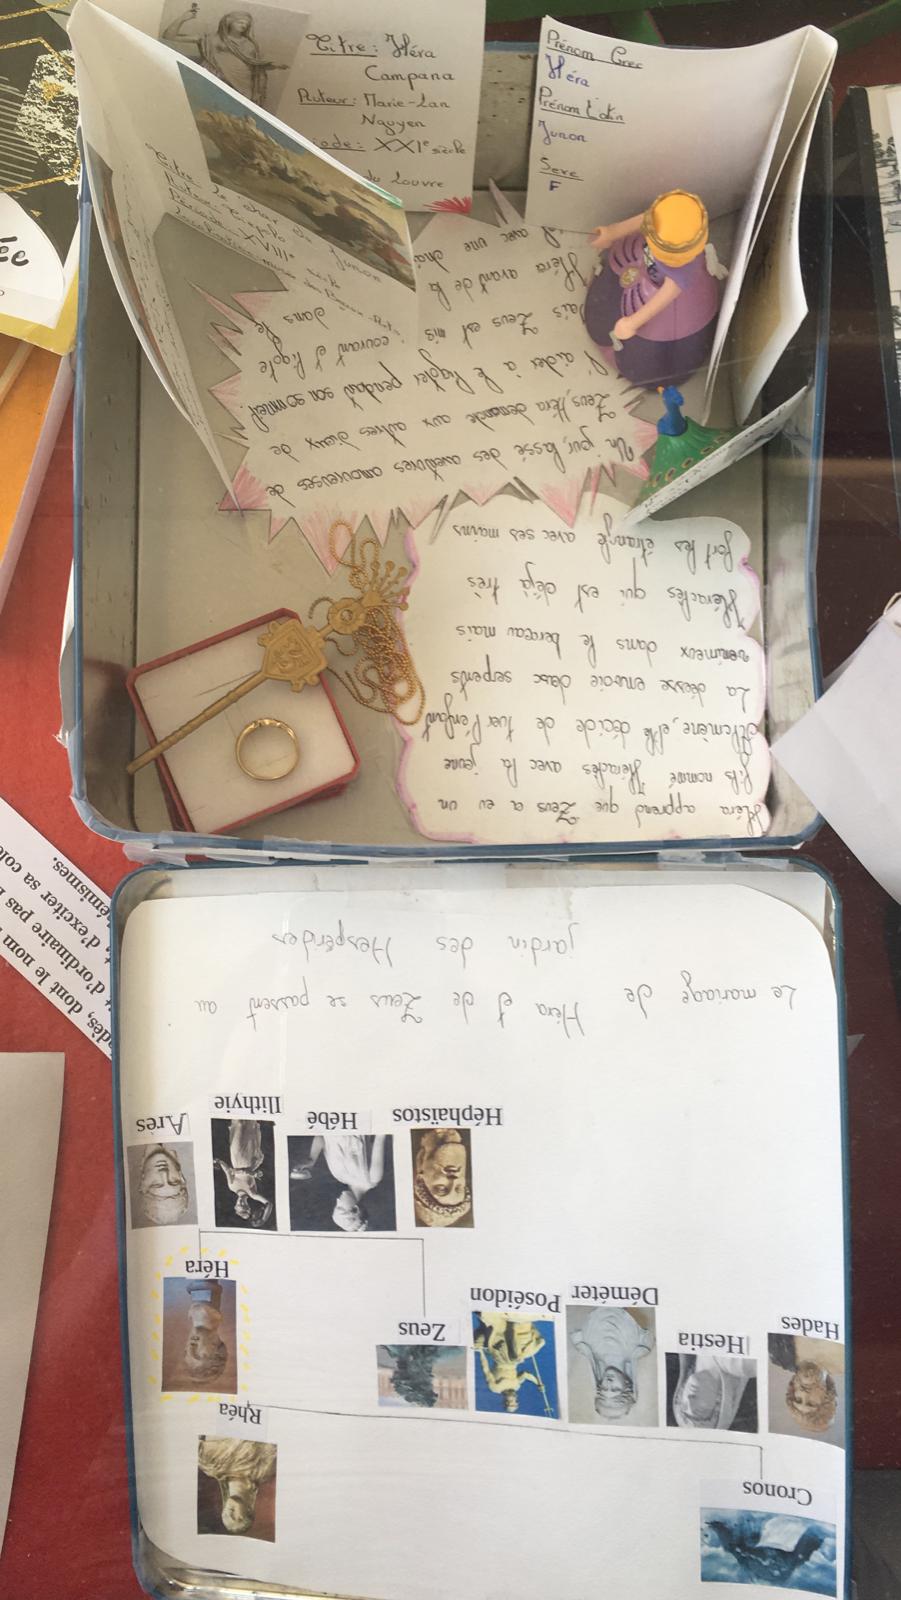 Titre : Héra
Campana
Auteur : Marie-Lan
Nguyen
XXIe siècle
du Louvre
Prénom Grec
Héra
Prénom Latin
Junon
Sexe
F
Titre : Le char de Junon
XVIIIe siècle
Un jour, lassé des aventures amoureuses de
Zeus, Héra demande aux autres dieux de
l'aider à le ligoter pendant son sommeil
Zeus est mis
courant et ligote
Héra avant de la
avec une
dans le
Héra apprend que Zeus a eu un
fils nommé Héraclès avec la jeune
Alcmène, elle décide de tuer l'enfant
La déesse envoie deux serpents
venimeux dans le berceau mais
Héraclès qui est déjà très
fort les étrangle avec ses mains
Cronos
Rhéa
Hades
Hestia
Déméter
Poséidon
Zeus
Héra
Héphaïstos
Hébé
Ilithyie
Arès
Le mariage de Héra et de Zeus se passent au
jardin des Hespérides
dont le nom
d'ordinaire pas
d'exciter sa